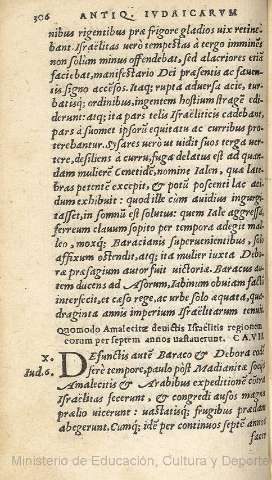 306 ANTIQ. IVDAICARVM
nibus rigentibus præ frigore gladios uix retine-
bant. Israëlitas uerò tempestas à tergo imminēs
non solùm minus offendebat, sed alacriores etiā
faciebat, manifestario Dei præsentis ac fauen-
tis signo accēsos. Itaq; rupta aduersa acie, tur-
batisq; ordinibus, ingentem hostium stragē edi-
derunt: atq; ita pars telis Israëliticis cadebant,
pars à suomet ipsorū equitatu ac curribus pro-
terebantur. Sysares uerò ut uidit suos terga uer-
tere, desiliens à curru, fuga delatus est ad quā-
dam mulierē Cenetidē, nomine Ialen, qua late-
bras petentē excepit, & potū poscenti lac aci-
dum exhibuit: quod ille cum auidius ingurgi-
tasset, in somnū est solutus: quem Iale aggressa,
ferreum clauum sopito per tempora adegit mal-
leo, moxq; Baracianis superuenientibus, solo
affixum ostendit, atq; ita mulier iuxta Debo-
ræ præsagium autor fuit uictoriæ. Baracus au-
tem ducens ad Asorum, Iabinum obuiam factū
interfecit, et cæso rege, ac urbe solo æquata, qua-
draginta annis imperium Israëlitarum tenuit.
Quomodo Amalecitæ deuictis Israëlitis regionem
eorum per septem annos uastauerunt. CA. VII.
X. DEfunctis autē Baraco & Debora eodē
Iud. 6. ferè tempore, paulo pòst Madianitæ socijs
Amalecitis & Arabibus expeditionē cōtra
Israëlitas fecerunt, & congredi ausos magno
prælio uicerunt: uastatisq; frugibus prædam
abegerunt. Cumq; idē per continuos septē annos
facer
Ministerio de Educación, Cultura y Deporte